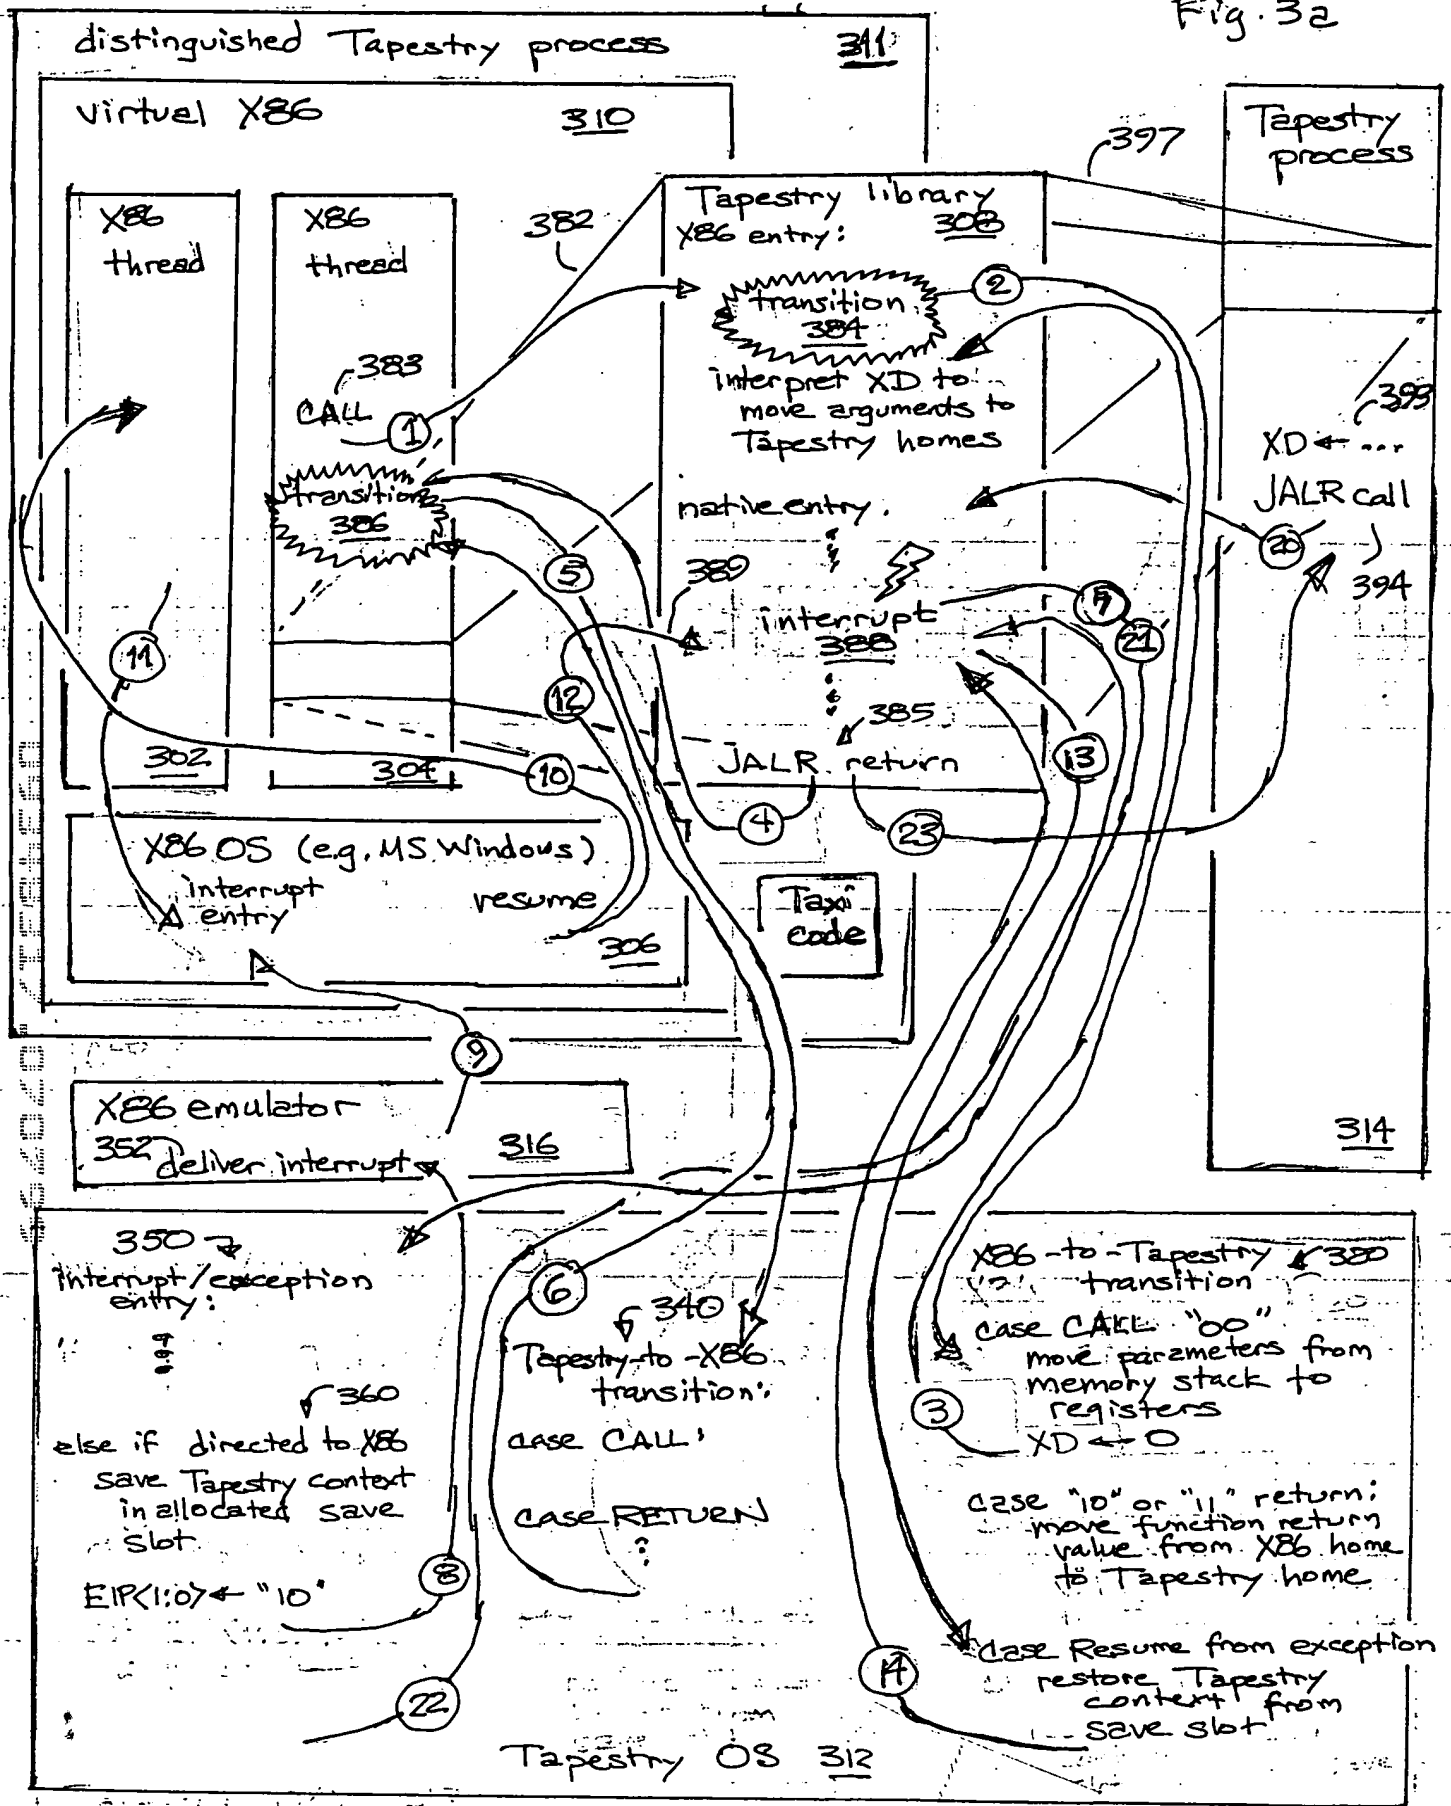 Fig. 3a
distinguished Tapestry process
311
virtual X86
310
X86
thread
302
X86
thread
383
CALL
1
transition
386
304
382
Tapestry library
308
X86 entry:
transition
384
2
interpret XD to
move arguments to
Tapestry homes
native entry.
389
interrupt
388
385
JALR return
397
Tapestry
process
393
XD ← ...
JALR call
20
394
314
5
7
21
11
12
10
13
4
23
X86 OS (e.g. MS Windows)
interrupt
entry
resume
306
Taxi
code
9
X86 emulator
352
deliver interrupt
316
350
interrupt/exception
entry:
360
else if directed to X86
save Tapestry context
in allocated save
slot
EIP<1:0> ← "10"
8
22
6
340
Tapestry-to-X86
transition:
case CALL:
case RETURN
X86-to-Tapestry
380
transition
case CALL "00"
move parameters from
memory stack to
registers
3
XD ← 0
case "10" or "11" return:
move function return
value from X86 home
to Tapestry home
case Resume from exception
restore Tapestry
context from
save slot
14
Tapestry OS 312